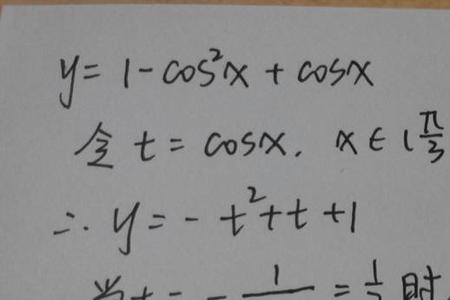 y = 1 - cos²x + cosx
令 t = cosx. x ∈ ( π/3
∴ y = - t² + t + 1
当 t = - 1 = 1 时